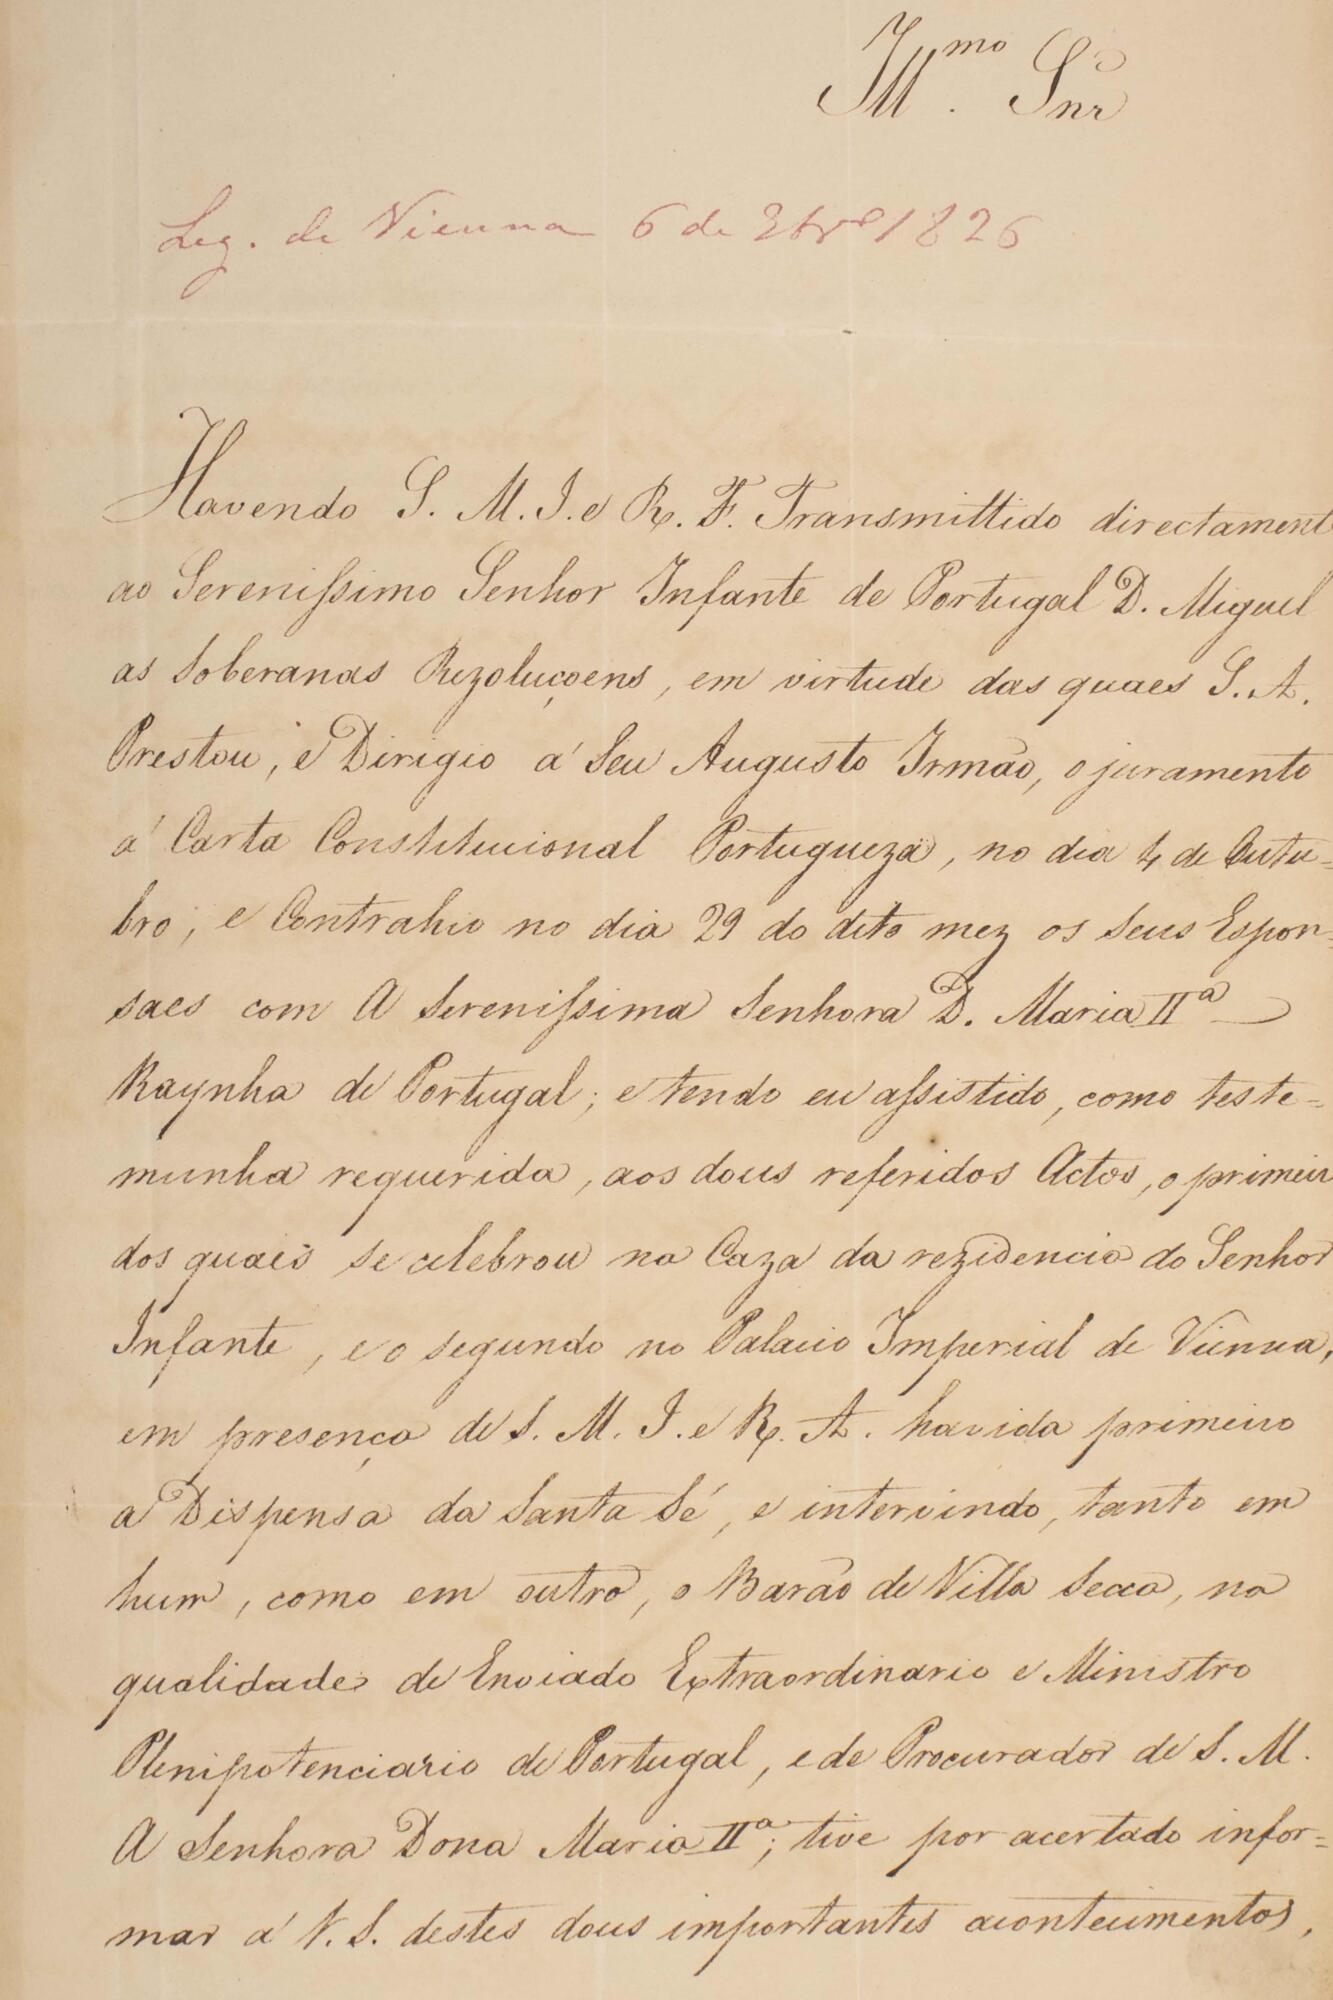 Ill.mo Snr
Leg. de Vienna 6 de Xbro 1826
Havendo S. M. I. e R. F. Transmittido directament
ao Serenissimo Senhor Infante de Portugal D. Miguel
as Soberanas Rezoluçoens, em virtude das quaes S. A.
Prestou, e Dirigio á Seu Augusto Irmão, o juramento
á Carta Constitucional Portugueza, no dia 4 de Outu=
bro, e Contrahio no dia 29 do dito mez os seus Espon=
saes com A Serenissima Senhora D. Maria IIa
Raynha de Portugal; e tendo eu assistido, como teste=
munha requerida, aos dous referidos Actos, o primeir
dos quaes se celebrou na Caza da rezidencia do Senhor
Infante, e o segundo no Palacio Imperial de Vienna,
em presença de S. M. I. e R. A. havida primeiro
a Dispensa da Santa Sé, e intervindo, tanto em
hum, como em outro, o Barão de Villa Secca, na
qualidade de Enviado Extraordinario e Ministro
Plenipotenciario de Portugal, e de Procurador de S. M.
A Senhora Dona Maria IIa; tive por acertado infor=
mar á V. S. destes dous importantes acontecimentos,